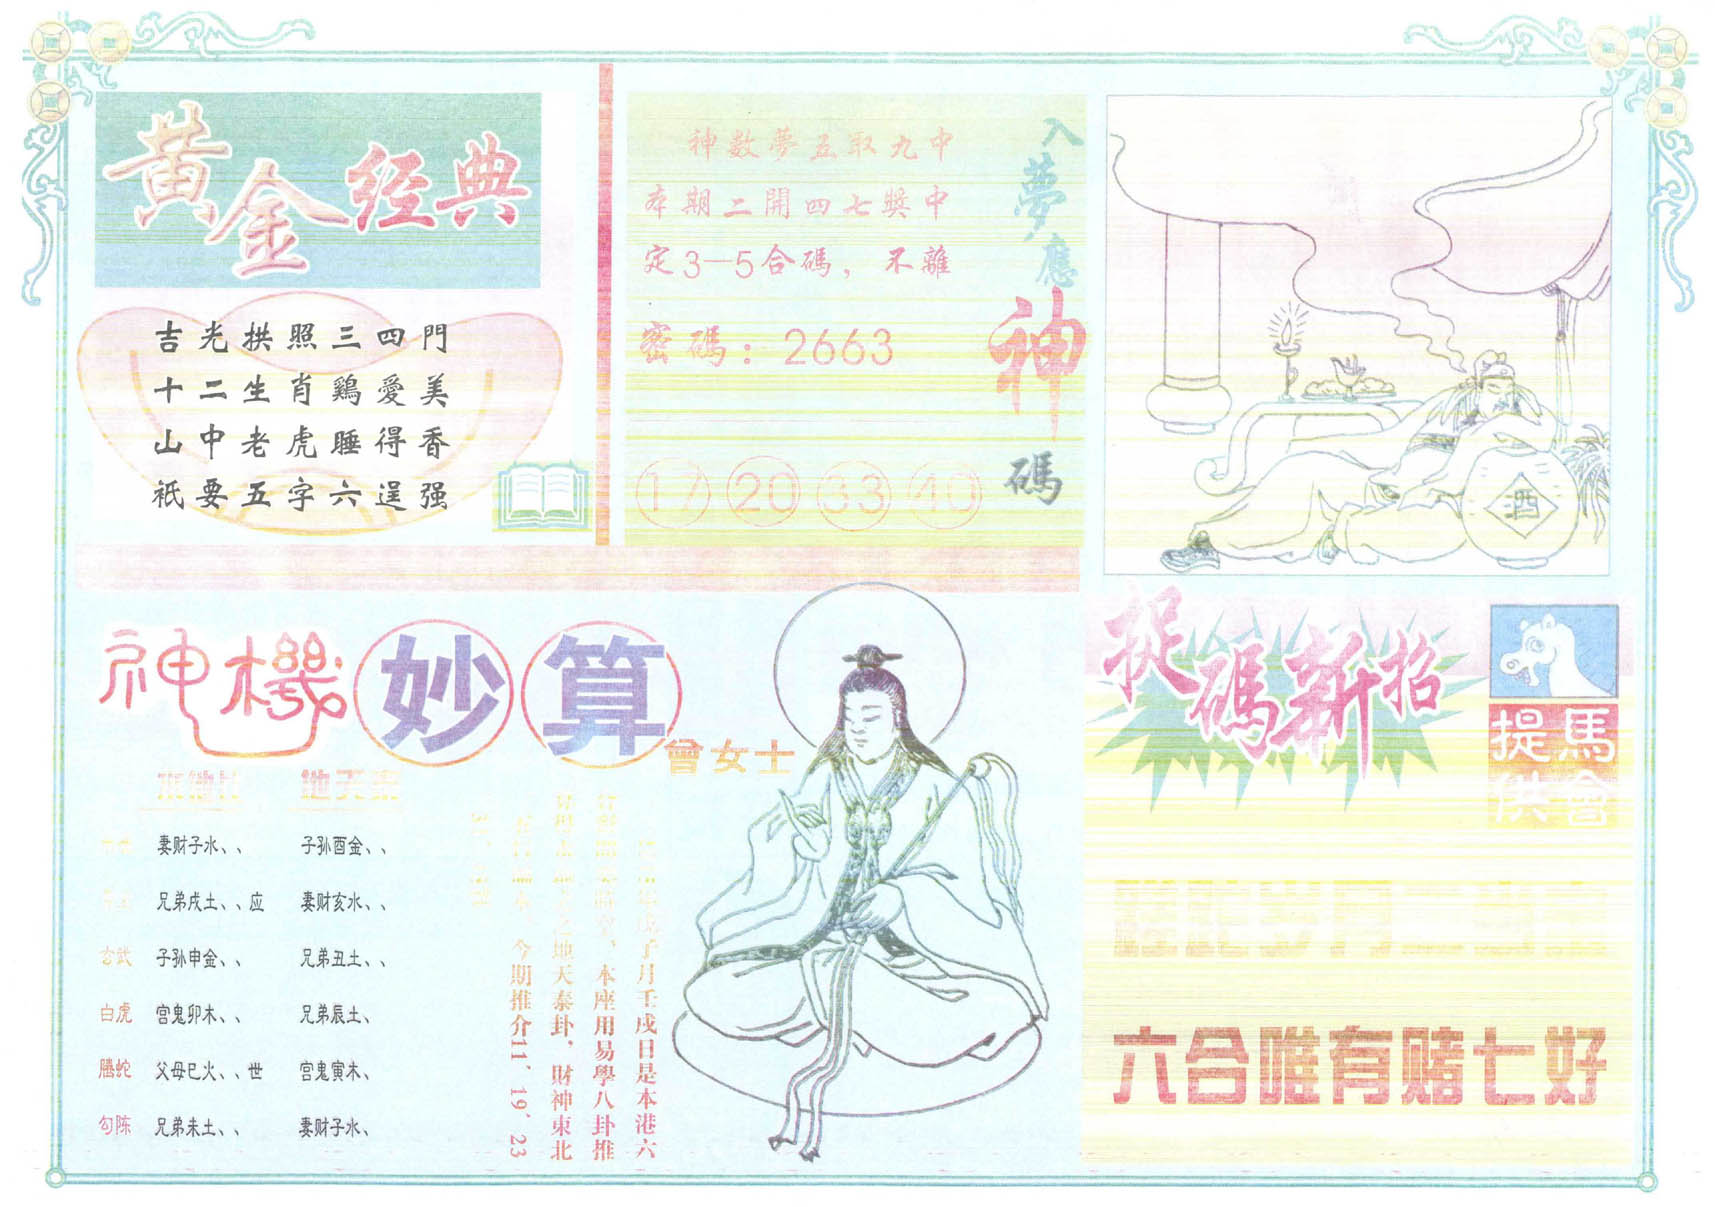 黄金经典
吉光拱照三四門
十二生肖鷄愛美
山中老虎睡得香
祇要五字六逞强
神數夢五取九中
本期二開四七獎中
定3—5合碼，不離
密碼：2663
17 20 33 40
入夢應神碼
酒
神機妙算
曾女士
地天泰
妻财子水、、 子孙酉金、、
兄弟戌土、、应 妻财亥水、、
玄武 子孙申金、、 兄弟丑土、、
白虎 宫鬼卯木、、 兄弟辰土、
螣蛇 父母巳火、、世 宫鬼寅木、
勾陈 兄弟未土、、 妻财子水、
子月壬戌日是本港六
本座用易學八卦推
之地天泰卦，財神東北
今期推介11、19、23
捉碼新招
馬會提供
六合唯有赌七好